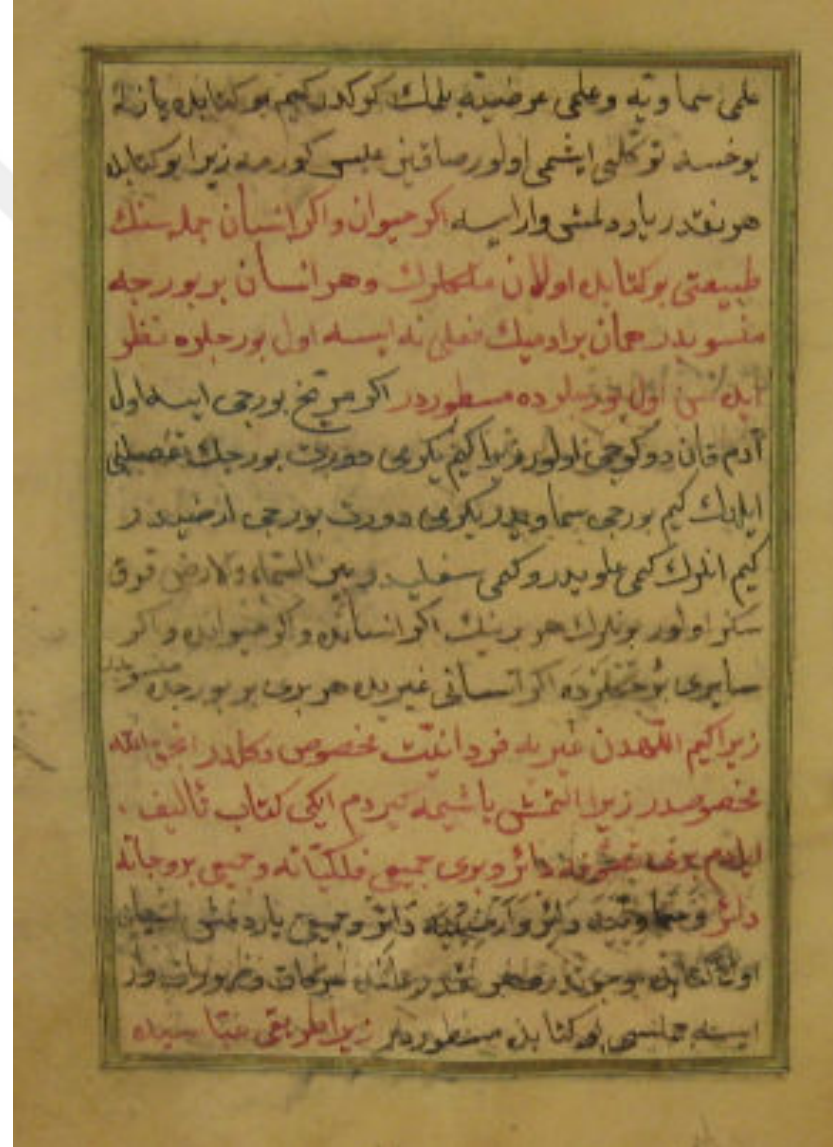 علمی سماویه و علمی عرضیه بلمك كركدر كیم بو كتابده یازله
یوخسه توكلی ایشمی اولور صاقین عبس كورمه زیرا بو كتابده
هر نقدر یاردلمش وار ایسه اكر حیوان و اكر انسان جمله سنك
طبیعتی بو كتابده اولان ملكلرك وهر انسان بر بورجه
منسوبدر همان بر ادمیك فعلی نه ایسه اول بورجلره نظر
اول بورجلرده مسطوردر اكر مریخ بورجی ایسه اول
آدم قان دوكوجی اولور زیرا كیم یكرمی دورت بورجك تفصیلنی
ایلدك كیم بورجی سماویدر یكرمی دورت بورجی ارضیدر
كیم انلرك كمی علویدر و كمی سفلیدر بین السماء والارض قرق
سكز اولور بونلرك هر برینك اكر انسانده و اكر حیوانده و اكر
سایری اكر انسانی غیریده هر بری بر بورجه منسوبدر
زیرا كیم اللهدن غیریه فردانیت مخصوص دكلدر انجق الله
مخصوصدر زیرا التمش یاشیمه كیردم ایكی كتاب تألیف
ایلدم بری تصوفه دائر و بری جمیعی فلكیاته و جمیعی بروجاته
دائر و سماویه دائر و ارضیه دائر و جمیعی یاردلمش
هر نقدر حركات وار
ایسه جمله سی بو كتابده مسطوردر زیرا طریقی